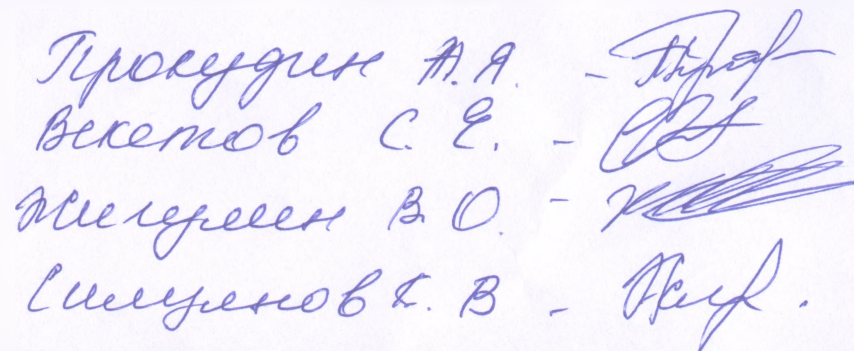 Прокудин Ж.Я. -
Векетов С. Е. -
Жигулин В.О. -
Симуянов К. В -